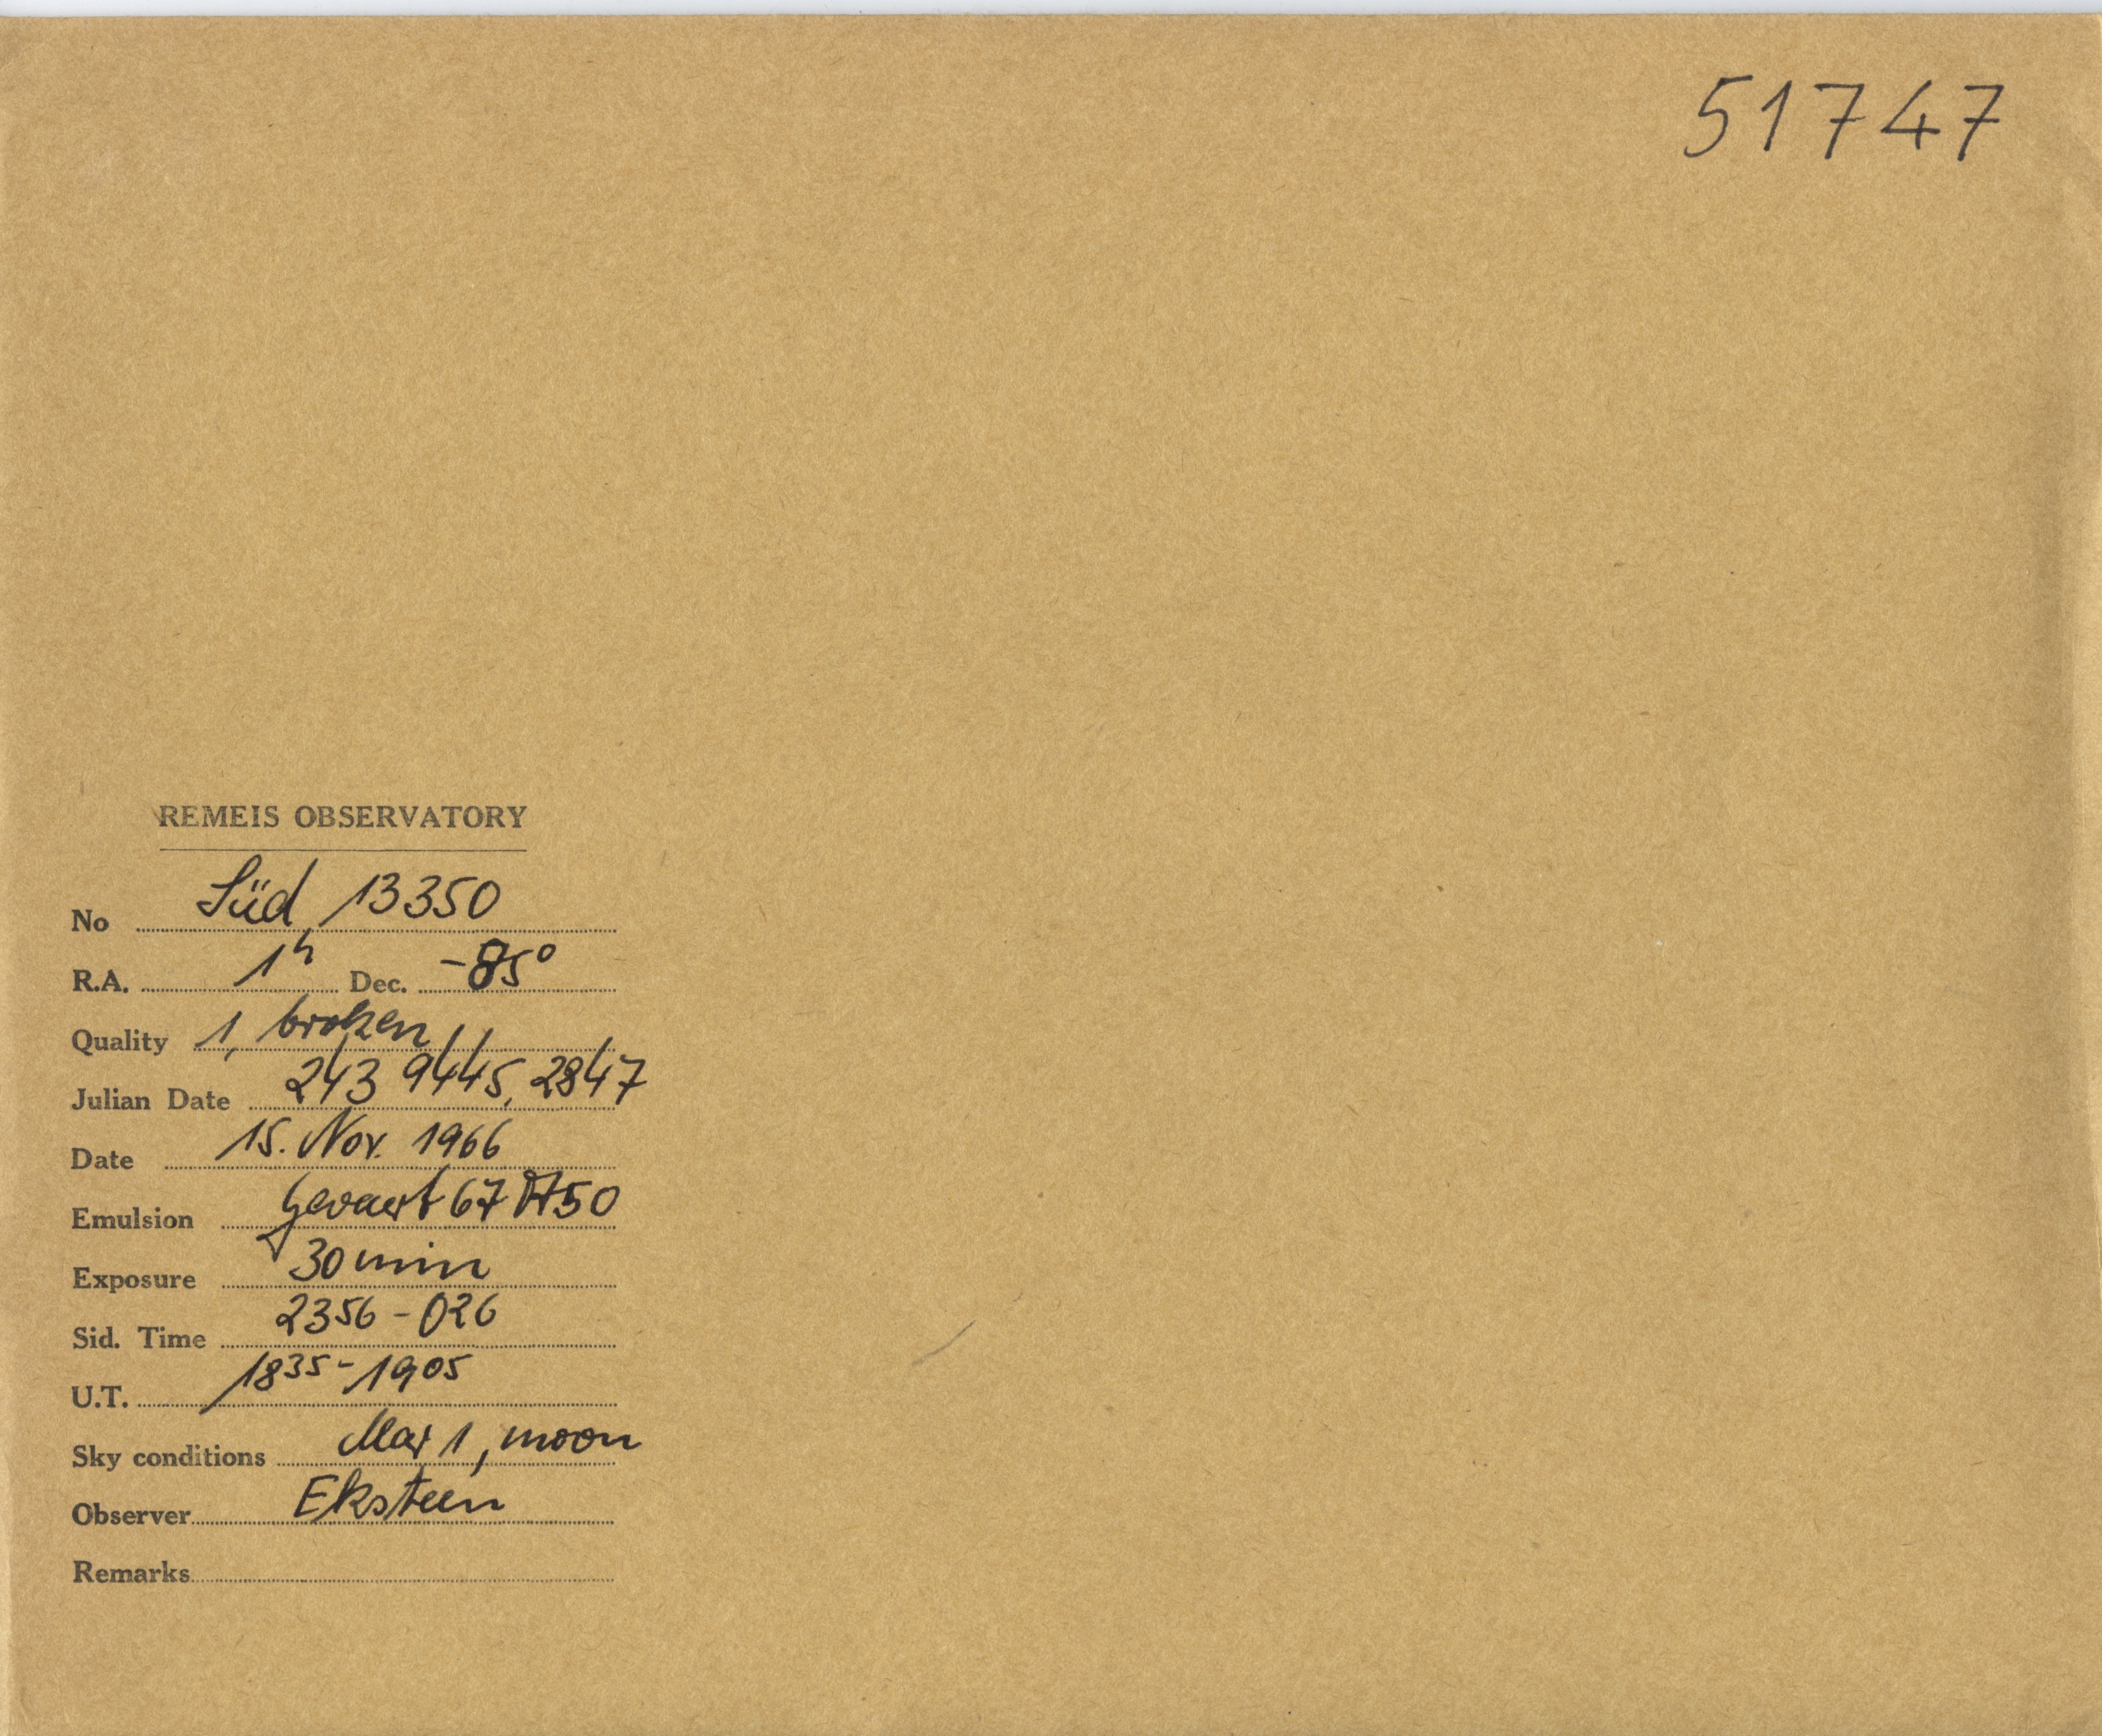 51747
REMEIS OBSERVATORY
No Süd 13350
R.A. 1h Dec. -85°
Quality 1, broken
Julian Date 243 9445,2847
Date 15. Nov. 1966
Emulsion Gevaert 67A50
Exposure 30 min
Sid. Time 2356 - 026
U.T. 1835 - 1905
Sky conditions 1, moon
Observer Eksteen
Remarks